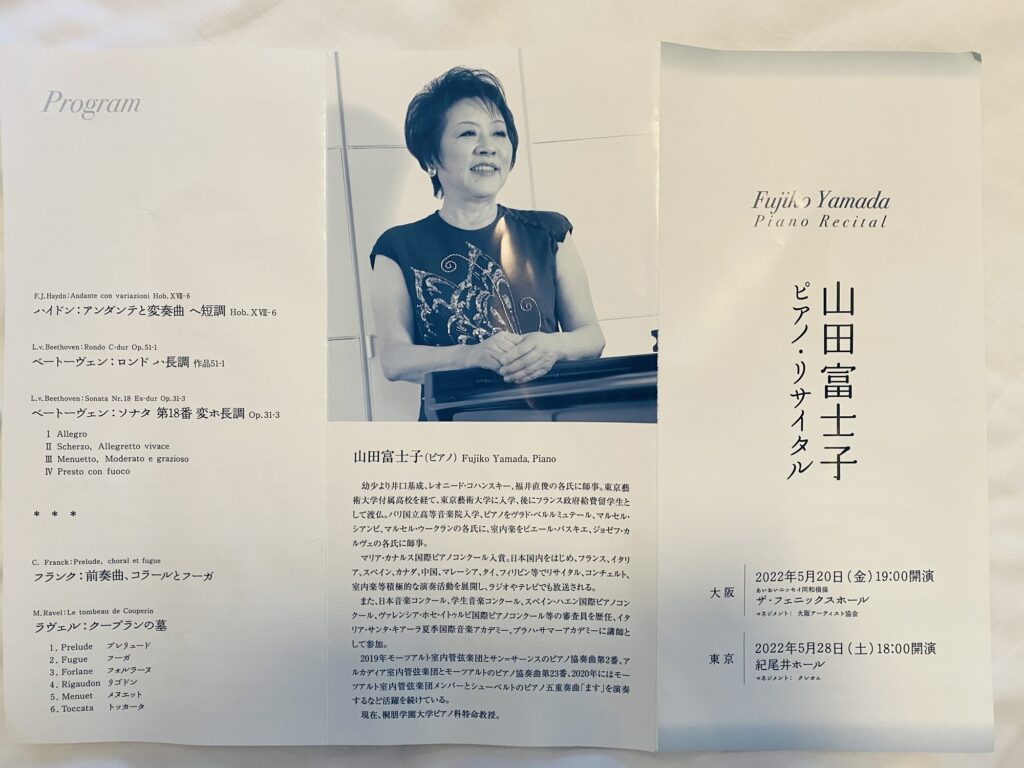 Program
F.J.Haydn:Andante con variazioni Hob.XⅦ-6
ハイドン:アンダンテと変奏曲 ヘ短調 Hob.XⅦ-6
L.v.Beethoven:Rondo C-dur Op.51-1
ベートーヴェン:ロンド ハ長調 作品51-1
L.v.Beethoven:Sonata Nr.18 Es-dur Op.31-3
ベートーヴェン:ソナタ 第18番 変ホ長調 Op.31-3
Ⅰ Allegro
Ⅱ Scherzo, Allegretto vivace
Ⅲ Menuetto, Moderato e grazioso
Ⅳ Presto con fuoco
* * *
C. Franck:Prelude, choral et fugue
フランク:前奏曲、コラールとフーガ
M.Ravel:Le tombeau de Couperin
ラヴェル:クープランの墓
1. Prelude プレリュード
2. Fugue フーガ
3. Forlane フォルラーヌ
4. Rigaudon リゴドン
5. Menuet メヌエット
6. Toccata トッカータ
山田富士子(ピアノ) Fujiko Yamada, Piano
幼少より井口基成、レオニード・コハンスキー、福井直俊の各氏に師事。東京藝
術大学付属高校を経て、東京藝術大学に入学、後にフランス政府給費留学生と
して渡仏。パリ国立高等音楽院入学、ピアノをヴラド・ペルルミュテール、マルセル・
シアンピ、マルセル・ウークランの各氏に、室内楽をピエール・パスキエ、ジョゼフ・カ
ルヴェの各氏に師事。
マリア・カナルス国際ピアノコンクール入賞。日本国内をはじめ、フランス、イタリ
ア、スペイン、カナダ、中国、マレーシア、タイ、フィリピン等でリサイタル、コンチェルト、
室内楽等積極的な演奏活動を展開し、ラジオやテレビでも放送される。
また、日本音楽コンクール、学生音楽コンクール、スペイン・ハエン国際ピアノコン
クール、ヴァレンシア・ホセ・イトゥルビ国際ピアノコンクール等の審査員を歴任、イタ
リア・サンタ・キアーラ夏季国際音楽アカデミー、プラハ・サマーアカデミーに講師と
して参加。
2019年モーツアルト室内管弦楽団とサン=サーンスのピアノ協奏曲第2番、ア
ルカディア室内管弦楽団とモーツアルトのピアノ協奏曲第23番、2020年にはモー
ツアルト室内管弦楽団メンバーとシューベルトのピアノ五重奏曲「ます」を演奏
するなど活躍を続けている。
現在、桐朋学園大学ピアノ科特命教授。
Fujiko Yamada
Piano Recital
山田富士子
ピアノ・リサイタル
大阪
2022年5月20日(金)19:00開演
あいおいニッセイ同和損保
ザ・フェニックスホール
マネジメント: 大阪アーティスト協会
東京
2022年5月28日(土)18:00開演
紀尾井ホール
マネジメント: クレオム